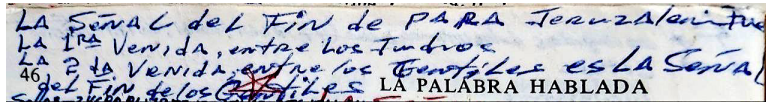 LA SEÑAL del Fin de PARA Jeruzalem Fue
LA 1RA Venida, entre Los Judios
LA 2da Venida, entre los Gentiles es LA Señal
46
del Fin de los Gentiles
LA PALABRA HABLADA